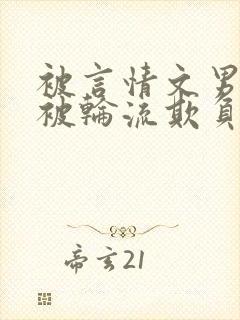 被言情文男
被輪流欺負
帝玄21